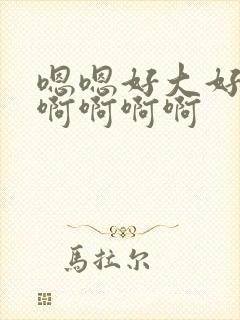 嗯嗯好大好
啊啊啊啊
馬拉尔